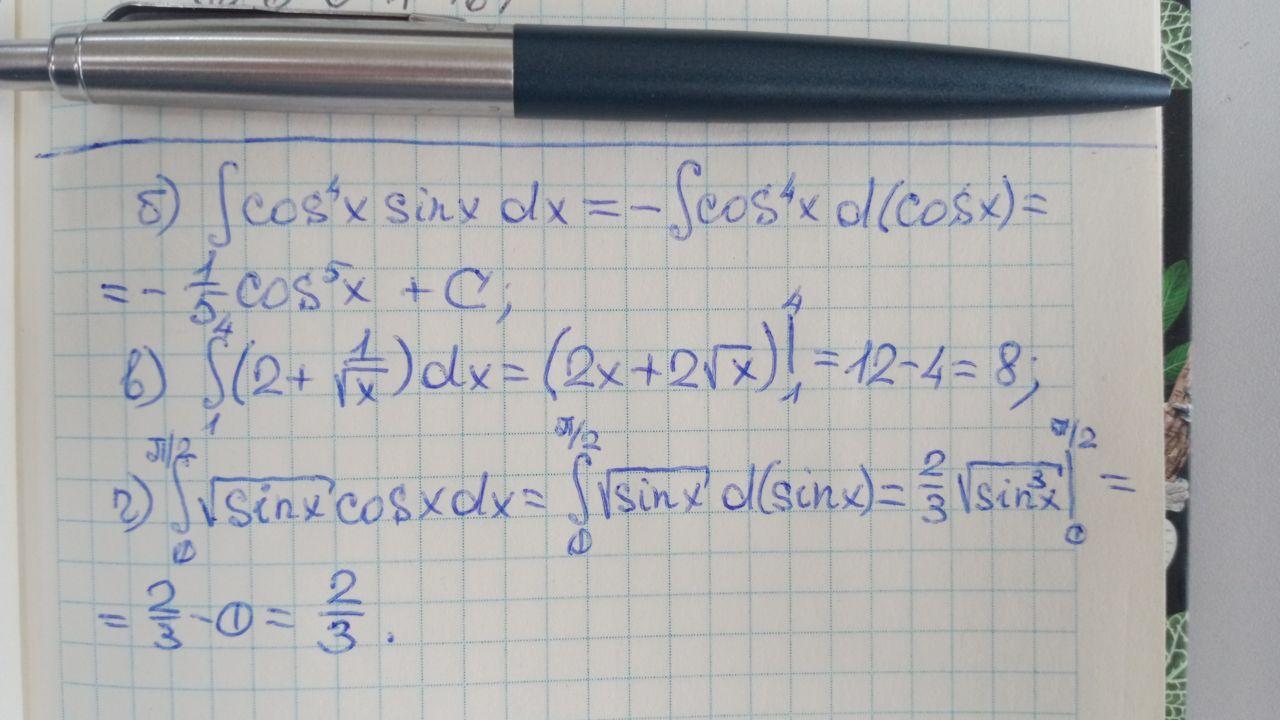 б) ∫cos⁴x sinx dx = -∫cos⁴x d(cosx) =
= - 1/5 cos⁵x + C;
в) ∫₁⁴(2 + 1/√x)dx = (2x + 2√x)|₁⁴ = 12 - 4 = 8;
г) ∫₀^(π/2) √(sinx) cosx dx = ∫₀^(π/2) √(sinx) d(sinx) = 2/3 √(sin³x)|₀^(π/2) =
= 2/3 - 0 = 2/3.